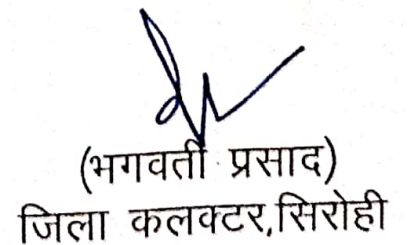 (भगवती प्रसाद)
जिला कलक्टर,सिरोही